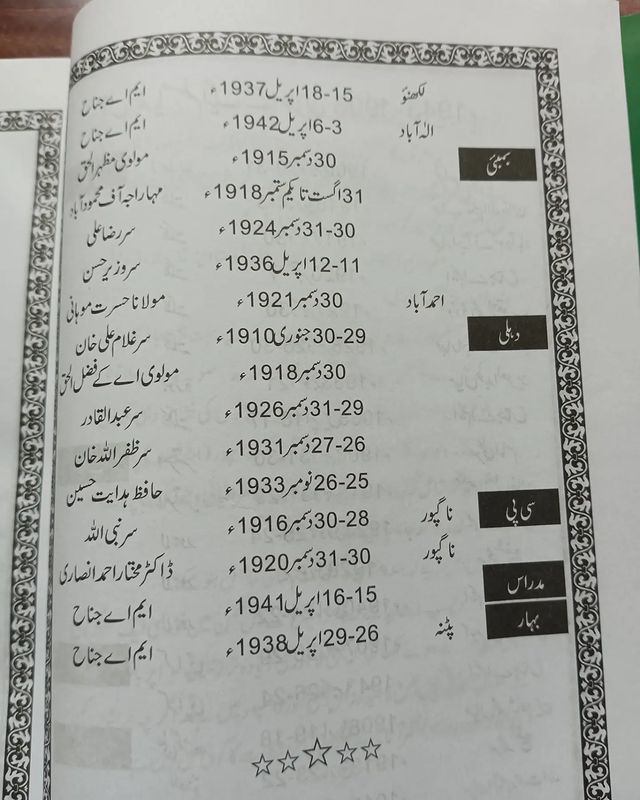 لکھنؤ 15-18اپریل1937ء ایم اے جناح
الٰہ آباد 3-6اپریل1942ء ایم اے جناح
بمبئی 30دسمبر1915ء مولوی مظہر الحق
31اگست تا یکم ستمبر1918ء مہاراجہ آف محمود آباد
30-31دسمبر1924ء سر رضا علی
11-12اپریل1936ء سر وزیر حسن
احمد آباد 30دسمبر1921ء مولانا حسرت موہانی
دہلی 29-30جنوری1910ء سر غلام علی خان
30دسمبر1918ء مولوی اے کے فضل الحق
29-31دسمبر1926ء سر عبدالقادر
26-27دسمبر1931ء سر ظفر اللہ خان
25-26نومبر1933ء حافظ ہدایت حسین
سی پی ناگپور 28-30دسمبر1916ء سر نبی اللہ
ناگپور 30-31دسمبر1920ء ڈاکٹر مختار احمد انصاری
مدراس 15-16اپریل1941ء ایم اے جناح
بہار پٹنہ 26-29اپریل1938ء ایم اے جناح